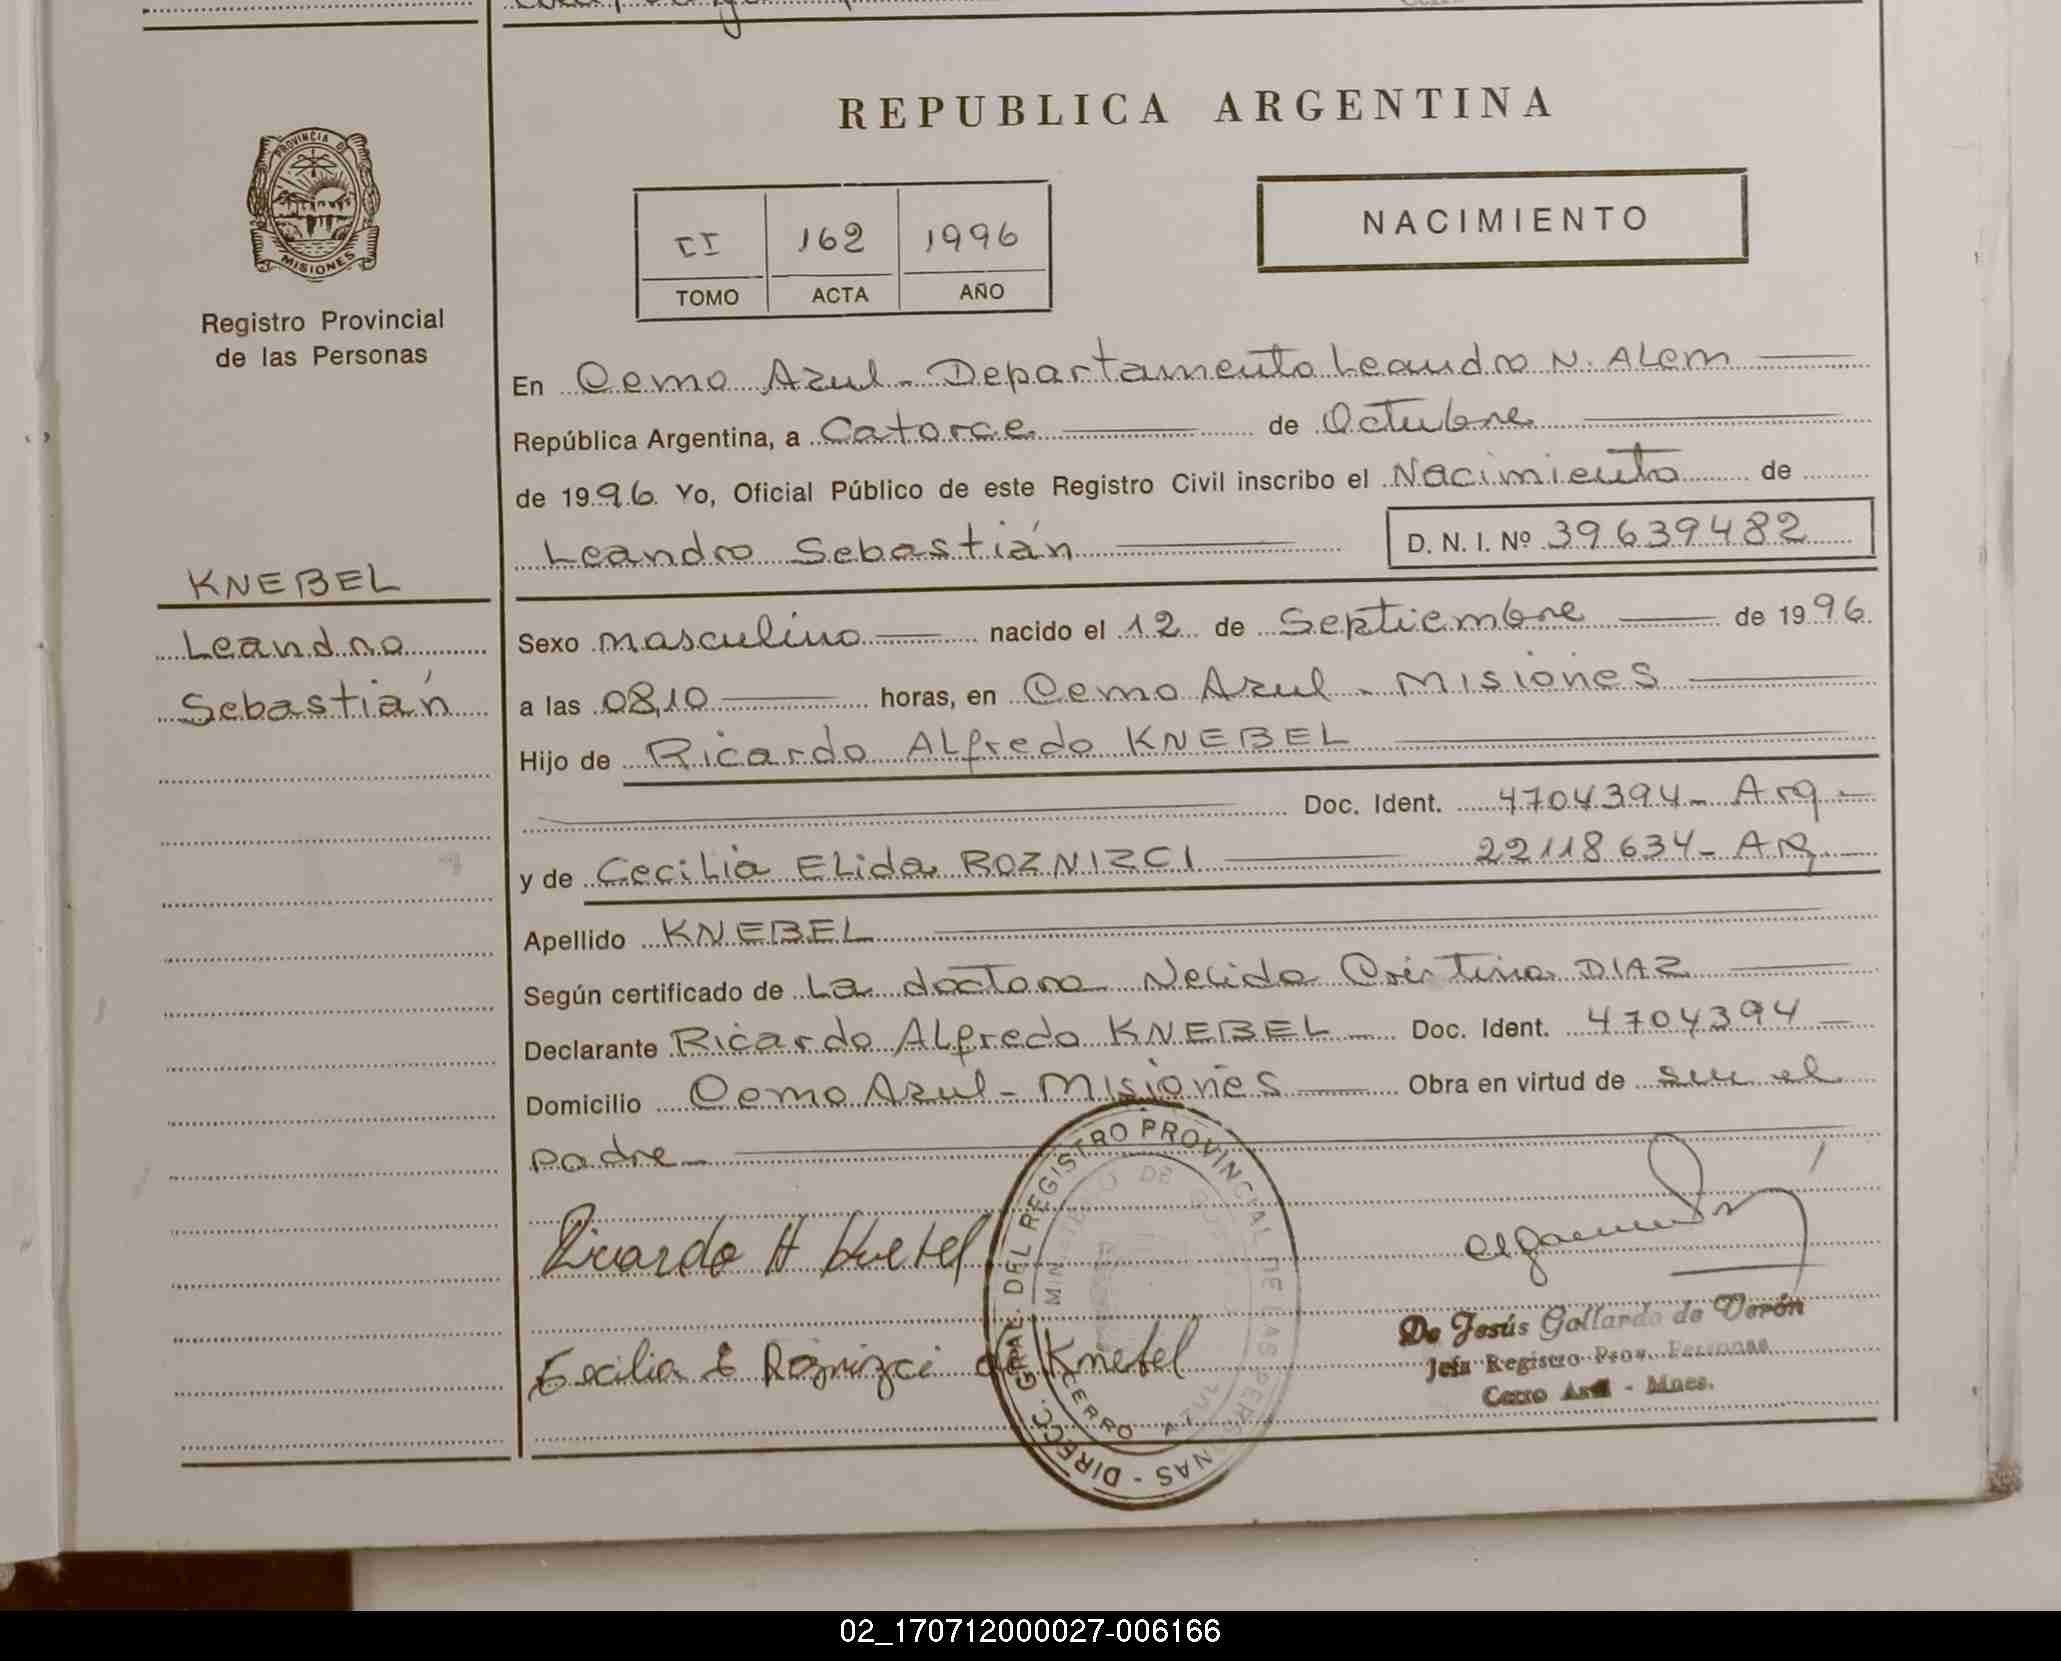 REPUBLICA ARGENTINA
PROVINCIA DE
MISIONES
Registro Provincial
de las Personas
II 162 1996
TOMO ACTA AÑO
NACIMIENTO
En Cerro Azul - Departamento Leandro N. Alem
República Argentina, a Catorce de Octubre
de 1996 Yo, Oficial Público de este Registro Civil inscribo el Nacimiento de
Leandro Sebastián D. N. I. Nº 39639482
KNEBEL
Leandro
Sebastián
Sexo masculino nacido el 12 de Septiembre de 1996
a las 08,10 horas, en Cerro Azul - Misiones
Hijo de Ricardo Alfredo KNEBEL
Doc. Ident. 4704394 - Arg -
y de Cecilia Elida ROZNIZCI 22118634 - Arg
Apellido KNEBEL
Según certificado de La doctora Nelida Cristina DIAZ
Declarante Ricardo Alfredo KNEBEL Doc. Ident. 4704394
Domicilio Cerro Azul - Misiones Obra en virtud de ser el
padre -
Ricardo A Knebel
Cecilia E Roznizci de Knebel
DIRECC. GRAL. DEL REGISTRO PROVINCIAL DE LAS PERSONAS -
MINISTERIO DE
CERRO AZUL
De Jesús Gallardo de Verón
Jefa Registro Prov. Personas
Cerro Azul - Mnes.
02_170712000027-006166